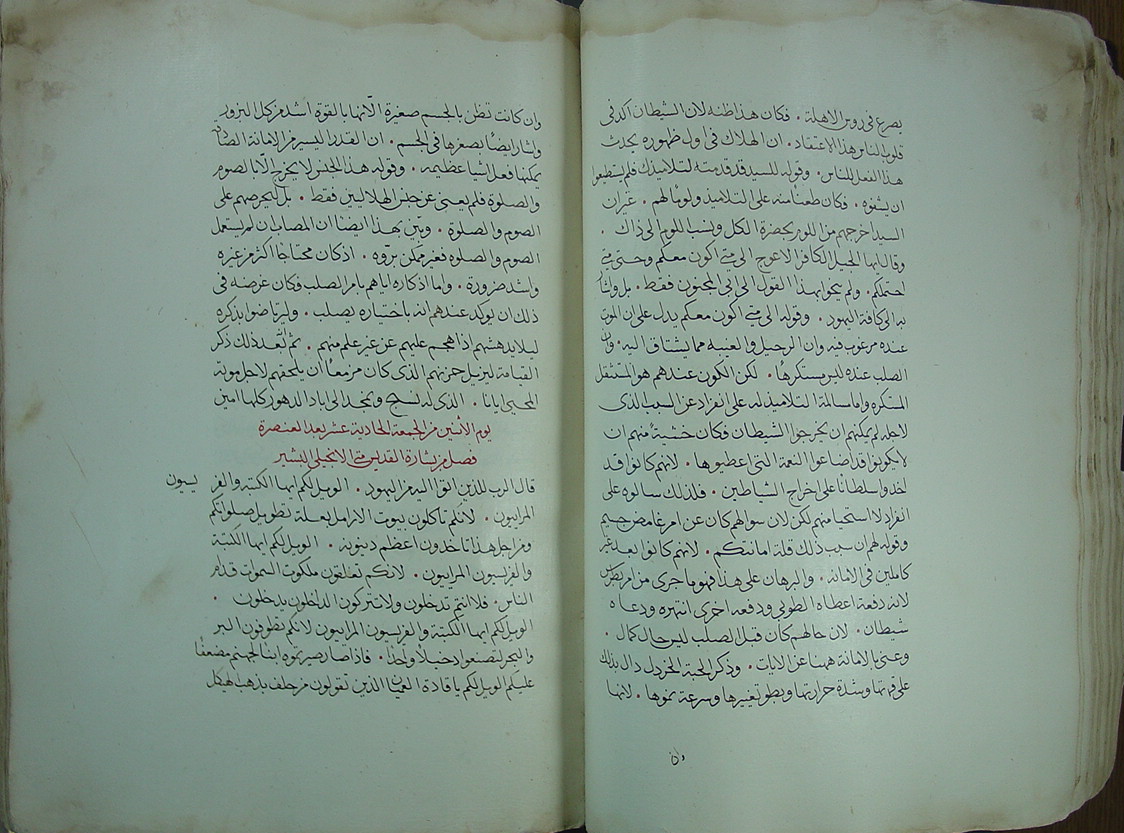 يصرع في رووس الاهلة . فكان هذا ظنه لان الشيطان اكد في
قلوب الناس هذا الاعتقاد . ان الهلاك في اول ظهوره يحدث
هذا الفعل للناس . وقوله للسيد قد قدمته لتلاميذك فلم يستطيعوا
ان يشفوه . فكان طعنا منه على التلاميذ ولوما لهم . غير ان
السيد اخرجهم من اللوم بحضرة الكل ونسب اللوم الى ذاك .
وقال ايها الجيل الكافر الاعوج الى متى اكون معكم وحتى متى
احتملكم . ولم ينحوا بهذا القول الى ابي المجنون فقط . بل واشار
به الى كافة اليهود . وقوله الى متى اكون معكم يدل على ان الموت
عنده مرغوب فيه وان الرحيل والغيبه مما يشتاق اليه . وان
الصلب عنده ليس مستكرها . لكن الكون عندهم هو المستثقل
المستكره واما سالة التلاميذ له على انفراد عن السبب الذى
لاجله لم يمكنهم ان يخرجوا الشيطان فكان خشية منهم ان
لا يكونوا قد اضاعوا النعمة التى اعطيوها . لانهم كانوا قد
اخدوا سلطانا على اخراج الشياطين . فلذلك سالوه على
انفراد لا استحيا منهم لكن لان سوالهم كان عن امر غامض جسيم
وقوله لهم ان سبب ذلك قلة امانتكم . لانهم كانوا بعد غير
كاملين فى الامانه . والبرهان على هذا فهو ما جرى من امر بطرس
لانه دفعة اعطاه الطوبى ودفعه اخرى انتهره ودعاه
شيطان . لان حالهم كان قبل الصلب ليس حال كمال .
وعنى بالامانة ههنا عن الايات . وذكر الحبة الخردل دال بذلك
على قوتها وشدة حرارتها وبطو تغييرها وسرعة نموها . لانها
وان
وان كانت تظن بالجسم صغيرة الا انها بالقوة اشد من كل البزور
واشار ايضا بصغرها فى الجسم . ان القدر اليسير من الامانة الصادقه
يمكنها فعل اشيا عظيمه . وقوله هذا الجنس لا يخرج الا بالصوم
والصلوة فلم يعنى عن جنس الهلاليين فقط . بل ليحرصهم على
الصوم والصلوة . وبين بهذا ايضا ان المصاب ان لم يستعمل
الصوم والصلوه فغير ممكن بروه . اذ كان محتاجا اكثر من غيره
واشد ضرورة . واما اذكاره اياهم بامر الصلب فكان غرضه فى
ذلك ان يوكد عندهم انه باختياره يصلب . وليرتاضوا بذكره
ليلا يدهشهم اذا هجم عليهم عن غير علم منهم . ثم انه بعد ذلك ذكر
القيامة ليزيل حزنهم الذى كان مزمعا ان يلحقهم لاجل موته
المحيى ايانا . الذى له نسبح ونمجد الى اباد الدهور كلها امين
يوم الاثنين من الجمعة الحادية عشر بعد العنصرة
فصل من بشارة القديس متى الانجيلى البشير
قال الرب للذين اتوا اليه من اليهود . الويل لكم ايها الكتبة والفريسيون
المرايون . لانكم تاكلون بيوت الارامل بعلة تطويل صلواتكم
ومن اجل هذا تاخدون اعظم دينونة . الويل لكم ايها الكتبة
والفريسيون المرايون . لانكم تغلقون ملكوت السموات قدام
الناس . فلا انتم تدخلون ولا تتركون الداخلون يدخلون .
الويل لكم ايها الكتبة والفريسيون المرايون لانكم تطوفون البر
والبحر لتصنعوا دخيلا واحدا . فاذا صار صيرتموه ابنا لجهنم مضعفا
عليكم الويل لكم يا قادة العميان الذين تقولون من حلف بذهب الهيكل